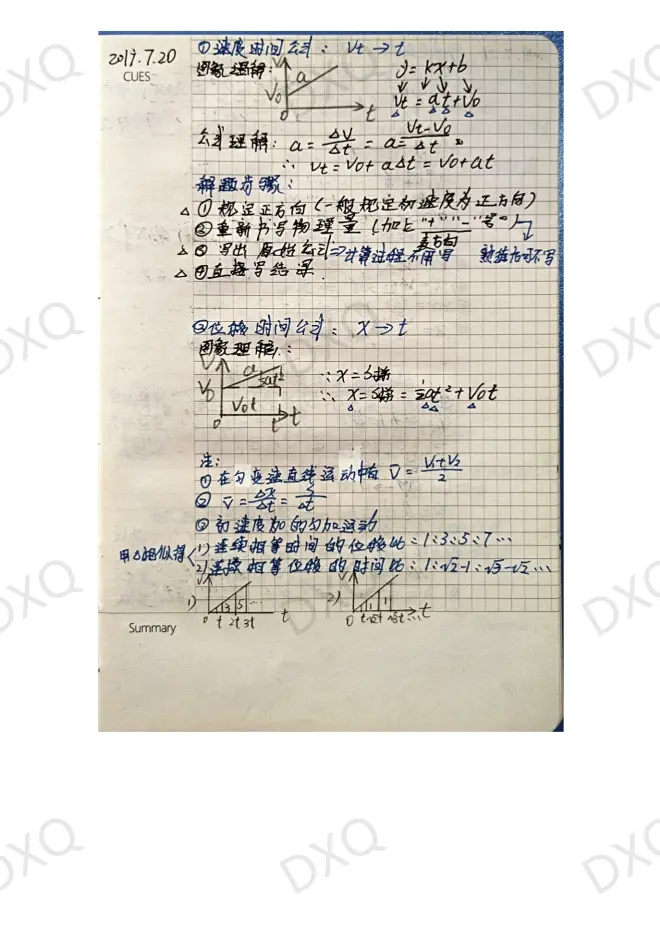 2019.7.20
CUES
①速度时间公式：Vt→t
图象理解：
V
a
V₀
0
t
y=kx+b
Vt=at+V₀
公式理解：a=ΔV/Δt=a=(Vt-V₀)/Δt
∴ Vt=V₀+aΔt=V₀+at
解题步骤：
△①规定正方向(一般规定初速度为正方向)
②重新书写物理量(加上"+""-"号)
表方向
△③写出原始公式⇒计算过程不用写 熟练后可不写
△④直接写结果.
②位移时间公式：X→t
图象理解：
V
a
V₀
½at²
V₀t
0
t
t
∵X=S梯
∴X=S梯=½at²+V₀t
注：
①在匀变速直线运动中有 V̄=(V₁+V₂)/2
② V̄=ΔX/Δt=S/Δt
③初速度为0的匀加运动
用△相似得
1)连续相等时间的位移比：1:3:5:7…
2)连续相等位移的时间比：1:√2-1:√3-√2…
1)
V
1 3 5 …
0 t 2t 3t t
2)
V
1 1 1
0 t √2t √3t … t
Summary
DXQ
DXQ
DXQ
DXQ
DXQ
DXQ
DXQ
DXQ
DXQ
DXQ
DXQ
DXQ